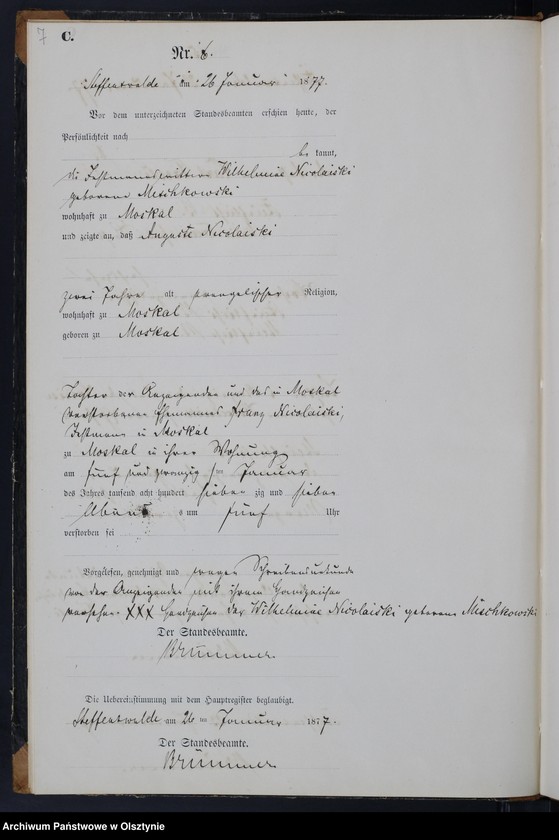 7
C.
Nr. 6.
Steffenswalde am 26 Januar 1877.
Vor dem unterzeichneten Standesbeamten erschien heute, der
Persönlichkeit nach
be kannt,
die Instmannswittwe Wilhelmine Nicolaiski
geborene Mischkowski
wohnhaft zu Moskal
und zeigte an, daß Auguste Nicolaiski
zwei Jahre alt evangelischer Religion,
wohnhaft zu Moskal
geboren zu Moskal
Tochter der Anzeigenden und des in Moskal
verstorbenen Ehemannes Franz Nicolaiski,
Instmann in Moskal
zu Moskal in ihrer Wohnung
am fünf und zwanzig sten Januar
des Jahres tausend acht hundert sieben zig und sieben
Abends um fünf Uhr
verstorben sei
Vorgelesen, genehmigt und wegen Schreibensunkunde
von der Anzeigenden mit ihrem Handzeichen
versehen XXX Handzeichen der Wilhelmine Nicolaiski geborene Mischkowski
Der Standesbeamte.
Brümmer
Die Uebereinstimmung mit dem Hauptregister beglaubigt.
Steffenswalde am 26 ten Januar 1877.
Der Standesbeamte.
Brümmer
Archiwum Państwowe w Olsztynie